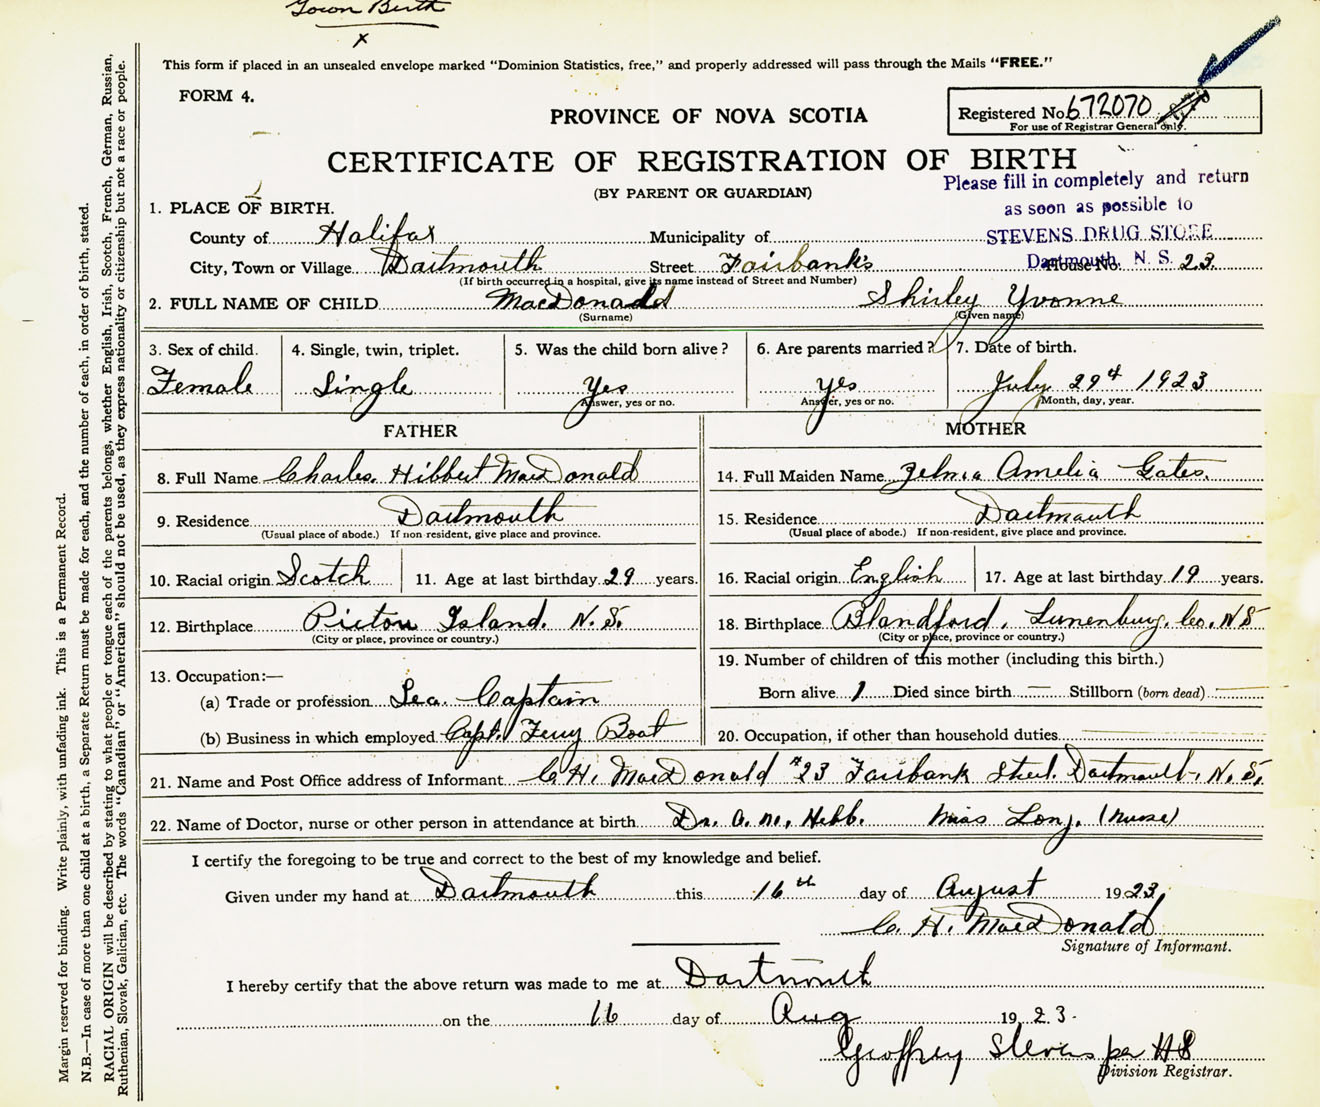 Town Birth
x
This form if placed in an unsealed envelope marked "Dominion Statistics, free," and properly addressed will pass through the Mails "FREE."
FORM 4.
PROVINCE OF NOVA SCOTIA
Registered No. 672070
For use of Registrar General only.
CERTIFICATE OF REGISTRATION OF BIRTH
(BY PARENT OR GUARDIAN)
Please fill in completely and return
as soon as possible to
STEVENS DRUG STORE
Dartmouth, N. S.
1. PLACE OF BIRTH.
County of Halifax Municipality of
City, Town or Village Dartmouth Street Fairbank's House No. 23.
(If birth occurred in a hospital, give its name instead of Street and Number)
2. FULL NAME OF CHILD MacDonald Shirley Yvonne
(Surname) (Given name)
3. Sex of child. 4. Single, twin, triplet. 5. Was the child born alive? 6. Are parents married? 7. Date of birth.
Female Single Yes Yes July 29th 1923
Answer, yes or no. Answer, yes or no. Month, day, year.
FATHER MOTHER
8. Full Name Charles. Hibbert MacDonald 14. Full Maiden Name Zelma Amelia Gates.
9. Residence Dartmouth 15. Residence Dartmouth
(Usual place of abode.) If non-resident, give place and province. (Usual place of abode.) If non-resident, give place and province.
10. Racial origin Scotch 11. Age at last birthday 29 years. 16. Racial origin English 17. Age at last birthday 19 years.
12. Birthplace Pictou Island. N. S. 18. Birthplace Blandford, Lunenburg. Co. N S
(City or place, province or country.) (City or place, province or country.)
13. Occupation:— 19. Number of children of this mother (including this birth.)
(a) Trade or profession Sea. Captain Born alive 1 Died since birth — Stillborn (born dead) —
(b) Business in which employed Capt. Ferry Boat 20. Occupation, if other than household duties
21. Name and Post Office address of Informant C. H. MacDonald #23 Fairbank Street. Dartmouth, N. S.
22. Name of Doctor, nurse or other person in attendance at birth Dr. A. M. Hebb. Miss Long. (nurse)
I certify the foregoing to be true and correct to the best of my knowledge and belief.
Given under my hand at Dartmouth this 16th day of August 1923,
C. H. MacDonald
Signature of Informant.
I hereby certify that the above return was made to me at Dartmouth
on the 16 day of Aug 1923.
Geoffrey Stevens per HS
Division Registrar.
Margin reserved for binding. Write plainly, with unfading ink. This is a Permanent Record.
N.B.—In case of more than one child at a birth, a Separate Return must be made for each, and the number of each, in order of birth, stated.
RACIAL ORIGIN will be described by stating to what people or tongue each of the parents belongs, whether English, Irish, Scotch, French, German, Russian,
Ruthenian, Slovak, Galician, etc. The words "Canadian" or "American" should not be used, as they express nationality or citizenship but not a race or people.